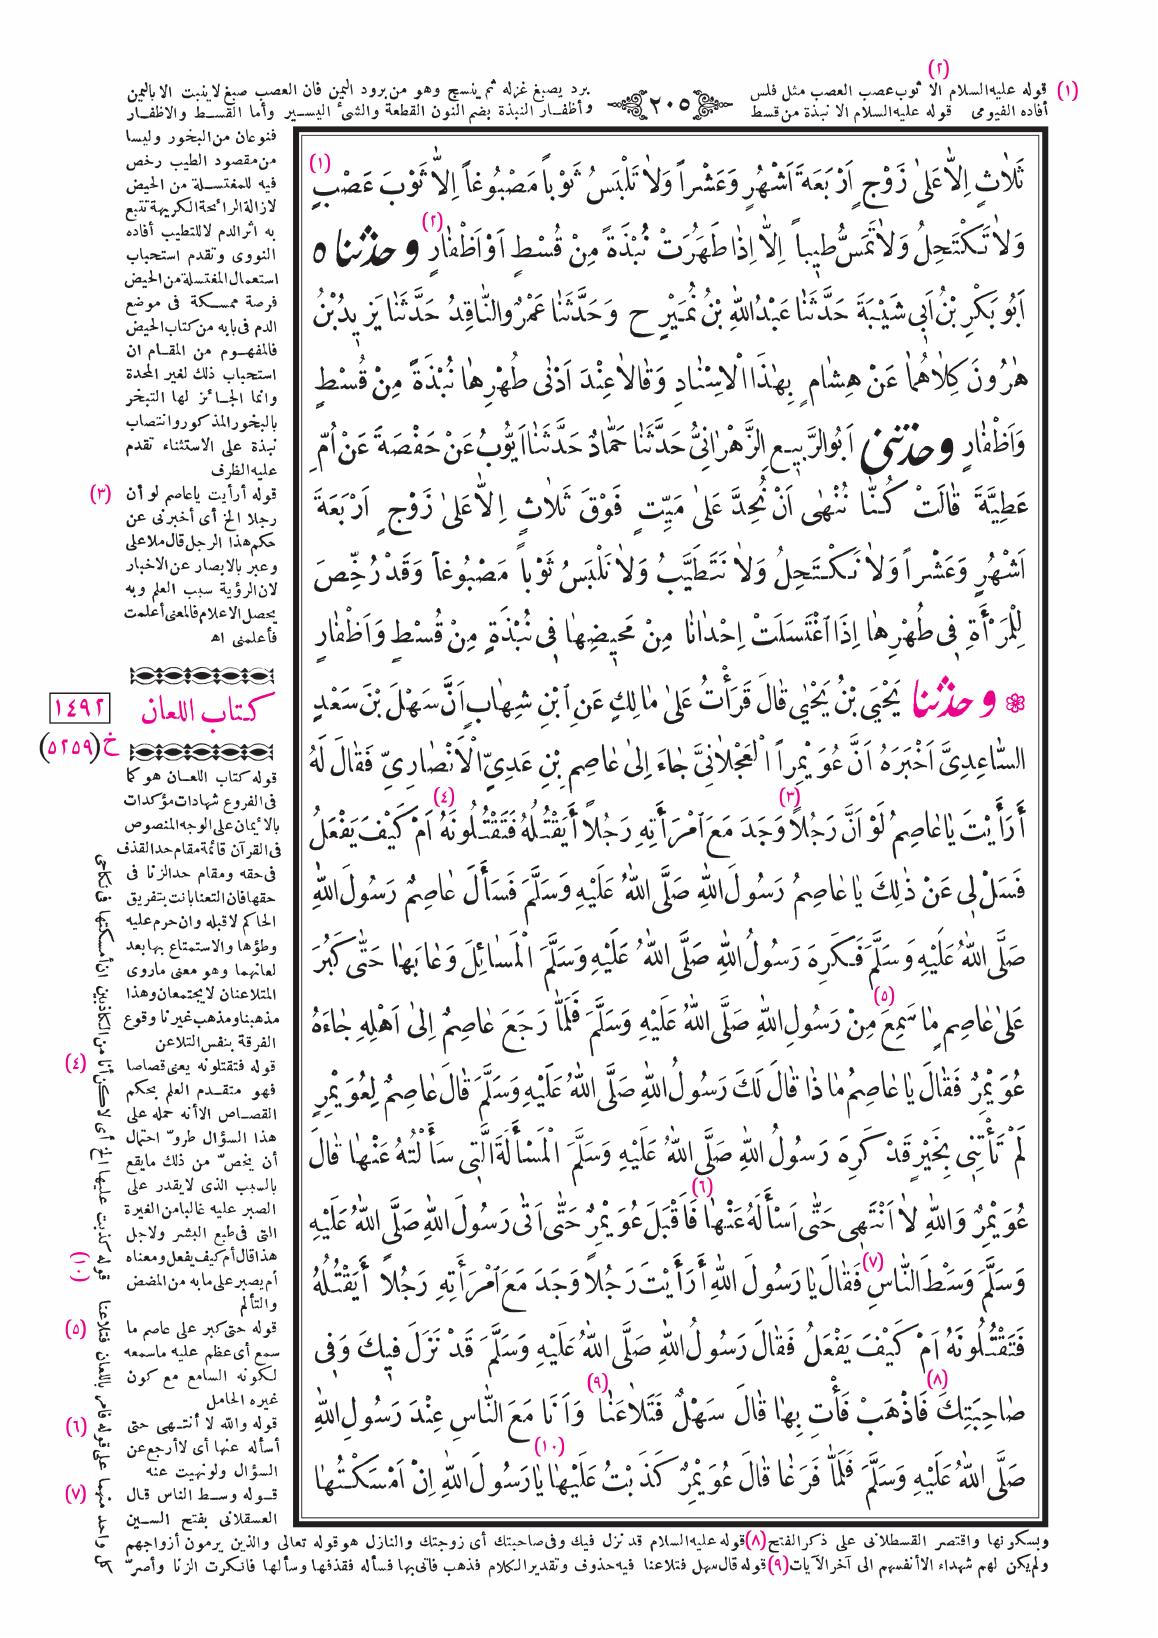 (٢)
(١) قوله عليه السلام الا ثوب عصب العصب مثل فلس
أفاده الفيومى قوله عليه السلام الا نبذة من قسط
٢٠٥
برد يصبغ غزله ثم ينسج وهو من برود اليمن فان العصب صبغ لا ينبت الا باليمن
وأظفار النبذة بضم النون القطعة والشئ اليسير وأما القسط والاظفار
ثَلَاثٍ اِلَّا عَلَى زَوْجٍ اَرْبَعَةَ اَشْهُرٍ وَعَشْراً وَلَا تَلْبَسُ ثَوْباً مَصْبُوغاً اِلَّا ثَوْبَ عَصْبٍ (١)
وَلَا تَكْتَحِلُ وَلَا تَمَسُّ طِيباً اِلَّا اِذَا طَهُرَتْ نُبْذَةً مِنْ قُسْطٍ اَوْ اَظْفَارٍ (٢) و حدثنا ٥
اَبُو بَكْرِ بْنُ اَبِي شَيْبَةَ حَدَّثَنَا عَبْدُ اللّٰهِ بْنُ نُمَيْرٍ ح وَحَدَّثَنَا عَمْرٌو النَّاقِدُ حَدَّثَنَا يَزِيدُ بْنُ
هٰرُونَ كِلَاهُمَا عَنْ هِشَامٍ بِهٰذَا الْاِسْنَادِ وَقَالَا عِنْدَ اَدْنٰى طُهْرِهَا نُبْذَةً مِنْ قُسْطٍ
وَاَظْفَارٍ و حدثنى اَبُو الرَّبِيعِ الزَّهْرَانِيُّ حَدَّثَنَا حَمَّادٌ حَدَّثَنَا اَيُّوبُ عَنْ حَفْصَةَ عَنْ اُمِّ
عَطِيَّةَ قَالَتْ كُنَّا نُنْهٰى اَنْ نُحِدَّ عَلٰى مَيِّتٍ فَوْقَ ثَلَاثٍ اِلَّا عَلٰى زَوْجٍ اَرْبَعَةَ
اَشْهُرٍ وَعَشْراً وَلَا نَكْتَحِلُ وَلَا نَتَطَيَّبُ وَلَا نَلْبَسُ ثَوْباً مَصْبُوغاً وَقَدْ رُخِّصَ
لِلْمَرْأَةِ فِى طُهْرِهَا اِذَا اغْتَسَلَتْ اِحْدَانَا مِنْ مَحِيضِهَا فِى نُبْذَةٍ مِنْ قُسْطٍ وَاَظْفَارٍ
و حدثنا يَحْيَى بْنُ يَحْيٰى قَالَ قَرَأْتُ عَلٰى مَالِكٍ عَنِ ابْنِ شِهَابٍ اَنَّ سَهْلَ بْنَ سَعْدٍ
السَّاعِدِىَّ اَخْبَرَهُ اَنَّ عُوَيْمِراً الْعَجْلَانِىَّ جَاءَ اِلٰى عَاصِمِ بْنِ عَدِىٍّ الْاَنْصَارِىِّ فَقَالَ لَهُ
أَرَأَيْتَ يَا عَاصِمُ لَوْ اَنَّ رَجُلاً (٣) وَجَدَ مَعَ امْرَأَتِهِ رَجُلاً أَيَقْتُلُهُ فَتَقْتُلُونَهُ (٤) اَمْ كَيْفَ يَفْعَلُ
فَسَلْ لِى عَنْ ذٰلِكَ يَا عَاصِمُ رَسُولَ اللّٰهِ صَلَّى اللّٰهُ عَلَيْهِ وَسَلَّمَ فَسَأَلَ عَاصِمٌ رَسُولَ اللّٰهِ
صَلَّى اللّٰهُ عَلَيْهِ وَسَلَّمَ فَكَرِهَ رَسُولُ اللّٰهِ صَلَّى اللّٰهُ عَلَيْهِ وَسَلَّمَ الْمَسَائِلَ وَعَابَهَا حَتّٰى كَبُرَ
عَلٰى عَاصِمٍ مَا سَمِعَ (٥) مِنْ رَسُولِ اللّٰهِ صَلَّى اللّٰهُ عَلَيْهِ وَسَلَّمَ فَلَمَّا رَجَعَ عَاصِمٌ اِلٰى اَهْلِهِ جَاءَهُ
عُوَيْمِرٌ فَقَالَ يَا عَاصِمُ مَا ذَا قَالَ لَكَ رَسُولُ اللّٰهِ صَلَّى اللّٰهُ عَلَيْهِ وَسَلَّمَ قَالَ عَاصِمٌ لِعُوَيْمِرٍ
لَمْ تَأْتِنِى بِخَيْرٍ قَدْ كَرِهَ رَسُولُ اللّٰهِ صَلَّى اللّٰهُ عَلَيْهِ وَسَلَّمَ الْمَسْأَلَةَ الَّتِى سَأَلْتُهُ عَنْهَا قَالَ
عُوَيْمِرٌ وَاللّٰهِ لَا اَنْتَهِى حَتّٰى اَسْأَلَهُ عَنْهَا (٦) فَاَقْبَلَ عُوَيْمِرٌ حَتّٰى اَتٰى رَسُولَ اللّٰهِ صَلَّى اللّٰهُ عَلَيْهِ
وَسَلَّمَ وَسْطَ النَّاسِ (٧) فَقَالَ يَا رَسُولَ اللّٰهِ أَرَأَيْتَ رَجُلاً وَجَدَ مَعَ امْرَأَتِهِ رَجُلاً أَيَقْتُلُهُ
فَتَقْتُلُونَهُ اَمْ كَيْفَ يَفْعَلُ فَقَالَ رَسُولُ اللّٰهِ صَلَّى اللّٰهُ عَلَيْهِ وَسَلَّمَ قَدْ نَزَلَ فِيكَ وَفِى
صَاحِبَتِكَ (٨) فَاذْهَبْ فَأْتِ بِهَا قَالَ سَهْلٌ فَتَلَاعَنَا (٩) وَاَنَا مَعَ النَّاسِ عِنْدَ رَسُولِ اللّٰهِ
صَلَّى اللّٰهُ عَلَيْهِ وَسَلَّمَ فَلَمَّا فَرَغَا قَالَ عُوَيْمِرٌ كَذَبْتُ عَلَيْهَا (١٠) يَا رَسُولَ اللّٰهِ اِنْ اَمْسَكْتُهَا
فنوعان من البخور وليسا
من مقصود الطيب رخص
فيه للمغتسلة من الحيض
لازالة الرائحة الكريهة تتبع
به اثر الدم لا للتطيب أفاده
النووى وتقدم استحباب
استعمال المغتسلة من الحيض
فرصة ممسكة فى موضع
الدم فى بابه من كتاب الحيض
فالمفهوم من المقام ان
استحباب ذلك لغير المحدة
وانما الجائز لها التبخر
بالبخور المذكور وانتصاب
نبذة على الاستثناء تقدم
عليه الظرف
(٣) قوله أرأيت يا عاصم لو أن
رجلا الخ أى أخبرنى عن
حكم هذا الرجل قال ملا على
وعبر بالابصار عن الاخبار
لان الرؤية سبب العلم وبه
يحصل الاعلام فالمعنى أعلمت
فأعلمنى اه
كتاب اللعان
١٤٩٢
خ (٥٢٥٩)
قوله كتاب اللعان هو كما
فى الفروع شهادات مؤكدات
بالأيمان على الوجه المنصوص
فى القرآن قائمة مقام حد القذف
فى حقه ومقام حد الزنا فى
حقها فان التعنا بانت بتفريق
الحاكم لا قبله وان حرم عليه
وطؤها والاستمتاع بها بعد
لعانهما وهو معنى ماروى
المتلاعنان لا يجتمعان وهذا
مذهبنا ومذهب غيرنا وقوع
الفرقة بنفس التلاعن
(٤) قوله فتقتلونه يعنى قصاصا
فهو متقدم العلم بحكم
القصاص الا أنه حمله على
هذا السؤال طروّ احتمال
أن يخصّ من ذلك ما يقع
بالسبب الذى لا يقدر على
الصبر عليه غالبا من الغيرة
التى فى طبع البشر ولاجل
هذا قال أم كيف يفعل ومعناه
أم يصبر على ما به من المضض
والتألم
(٥) قوله حتى كبر على عاصم ما
سمع أى عظم عليه ما سمعه
لكونه السامع مع كون
غيره الحامل
(٦) قوله والله لا أنتهى حتى
أسأله عنها أى لا أرجع عن
السؤال ولو نهيت عنه
(٧) قوله وسط الناس قال
العسقلانى بفتح السين
وبسكونها واقتصر القسطلانى على ذكر الفتح (٨) قوله عليه السلام قد نزل فيك وفى صاحبتك أى زوجتك والنازل هو قوله تعالى والذين يرمون أزواجهم
ولم يكن لهم شهداء الا أنفسهم الى آخر الآيات (٩) قوله قال سهل فتلاعنا فيه حذوف وتقدير الكلام فذهب فاتى بها فسأله فقذفها وسألها فانكرت الزنا وأصرّ
كل واحد منهما على قوله فامر باللعان فتلاعنا (١٠) قوله كذبت عليها الخ أى لاكن أنا من الكاذبين ان أمسكتها فى نكاحى